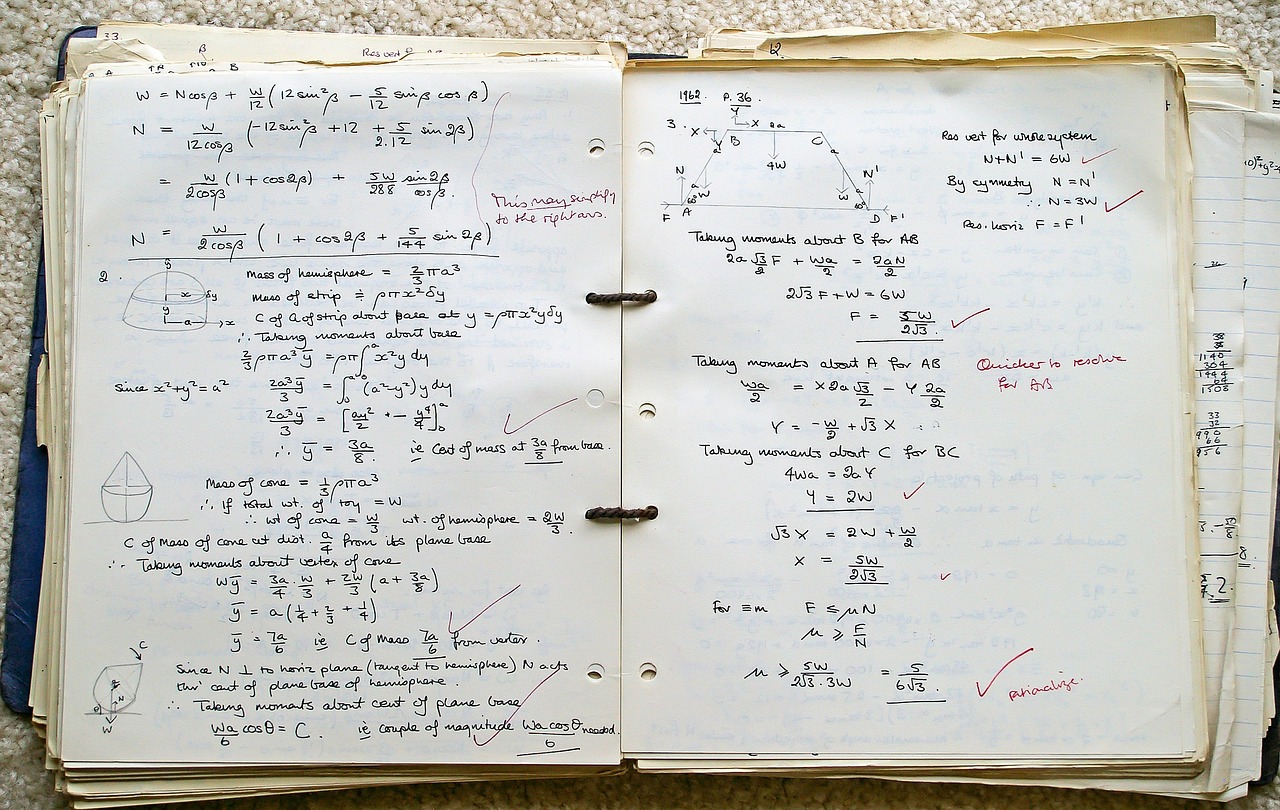 33.
β
Res vert
B
W = Ncosβ + W/12 (12 sin²β − 5/12 sinβ cosβ)
N = W/12cosβ (−12sin²β + 12 + 5/2.12 sin 2β)
= W/2cosβ (1 + cos2β) + 5W/288 sin2β/cosβ.
This may simplify
to the right ans.
N = W/2cosβ (1 + cos2β + 5/144 sin 2β)
2.
y
x δy
y
a x
Mass of hemisphere = 2/3 πa³
Mass of strip ≑ ρπx²δy
C of G of strip about base at y = ρπx²yδy
∴ Taking moments about base
2/3 ρπa³ȳ = ρπ∫₀ᵃ x²y dy
since x²+y²=a² 2a³ȳ/3 = ∫₀ᵃ (a²−y²) y dy
2a³ȳ/3 = [ay²/2 − y⁴/4]₀ᵃ
∴ ȳ = 3a/8 ie Cent of mass at 3a/8 from base.
Mass of cone = 1/3 ρπa³
∴ If total wt. of toy = W
∴ wt of cone = W/3 wt. of hemisphere = 2W/3.
C of Mass of cone at dist. a/4 from its plane base
∴ Taking moments about vertex of cone
Wȳ = 3a/4 . W/3 + 2W/3 (a + 3a/8)
ȳ = a(1/4 + 2/3 + 1/4)
ȳ = 7a/6 ie C of Mass 7a/6 from vertex.
C
N
θ
W
Since N ⊥ to horiz plane (tangent to hemisphere) N acts
thro' cent of plane base of hemisphere.
∴ Taking moments about cent of plane base
Wa/6 cosθ = C. ie couple of magnitude Wa cosθ/6 needed.
12.
1962. P. 36.
Y
X 2a
3. X B C
Y a a
4W
N N'
a W W a
60° 60°
F A D F'
Res vert for whole system
N+N' = 6W
By symmetry N = N'
∴ N = 3W
Res. horiz F = F'
Taking moments about B for AB
2a √3/2 F + Wa/2 = 2aN/2
2√3 F + W = 6W
F = 5W/2√3.
Taking moments about A for AB
Quicker to resolve
for AB
Wa/2 = X 2a √3/2 − Y 2a/2
Y = −W/2 + √3 X
Taking moments about C for BC
4Wa = 2aY
Y = 2W
√3 X = 2W + W/2
X = 5W/2√3
For ≡m F ≤ μN
μ ≥ F/N
μ ≥ 5W/2√3.3W = 5/6√3.
rationalize.
38
38
1140
304
1444
64
1508
33
32
990
66
956